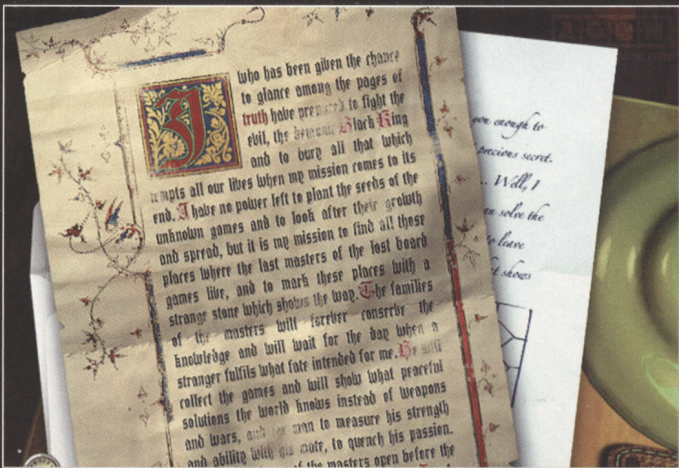 I who has been given the chance
to glance among the pages of
truth have prepared to fight the
evil, the demonic Black King
and to bury all that which
tempts all our lives when my mission comes to its
end. I have no power left to plant the seeds of the
unknown games and to look after their growth
and spread, but it is my mission to find all those
places where the last masters of the lost board
games live, and to mark these places with a
strange stone which shows the way. The families
of the masters will forever conserve the
knowledge and will wait for the day when a
stranger fulfils what fate intended for me. He will
collect the games and will show what peaceful
solutions the world knows instead of weapons
and wars, and for man to measure his strength
and ability with his mate, to quench his passion.
of the masters open before the
you enough to
precious secret.
... Well, I
can solve the
to leave
shows